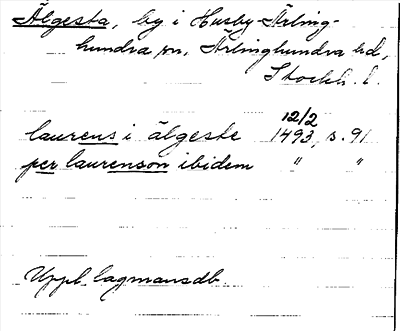 Älgesta, by i Husby-Ärling-
hundra sn, Ärlinghundra hd,
Stockh. l.
12/2
laurens i älgeste 1493, s. 91
per laurenson ibidem " "
Uppl. lagmansdb